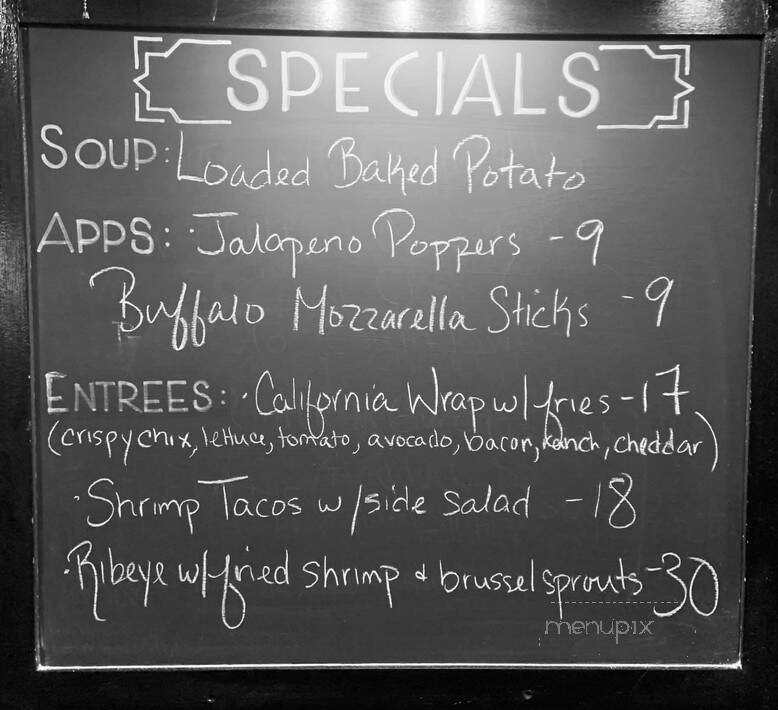 SPECIALS
SOUP: Loaded Baked Potato
APPS: · Jalapeno Poppers - 9
Buffalo Mozzarella Sticks - 9
ENTREES: · California Wrap w/ fries - 17
(crispy chix, lettuce, tomato, avocado, bacon, ranch, cheddar)
· Shrimp Tacos w/side salad - 18
· Ribeye w/fried shrimp & brussel sprouts - 30
menupix